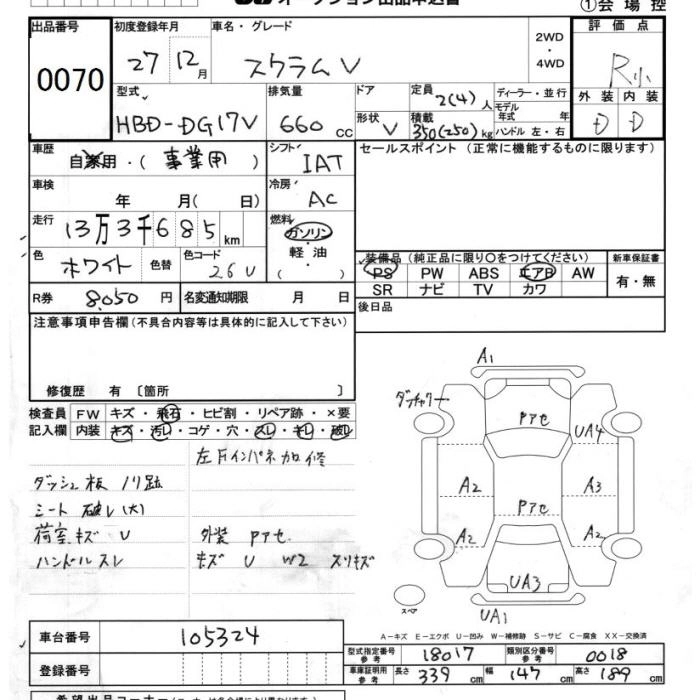 オークション出品申込書
①会場控
出品番号
0070
初度登録年月
27 12月
車名・グレード
スクラム V
2WD
・
4WD
評価点
R小
外装 内装
D D
型式
HBD-DG17V
排気量
660 cc
ドア
形状
V
定員
2(4)人
積載
350(250)kg
ディーラー・並行
モデル
年式 年
ハンドル 左・右
車歴
自家用・(事業用)
シフト
IAT
セールスポイント (正常に機能するものに限ります)
車検
年 月(日)
冷房
AC
走行
13万3千685km
燃料
ガソリン
・
軽油
( )
色
ホワイト
色替
色コード
26U
装備品(純正品に限り〇をつけてください)
PS PW ABS エアB AW
SR ナビ TV カワ
新車保証書
有・無
R券 8,050円
名変通知期限 月 日
後日品
注意事項申告欄(不具合内容等は具体的に記入して下さい)
修復歴 有 〔箇所 〕
検査員
記入欄
FW キズ・飛石・ヒビ割・リペア跡・×要
内装 キズ・汚レ・コゲ・穴・スレ・キレ・破レ
左Fインパネ加修
ダッシュ板 ノリ跡
シート 破レ(大)
荷室キズ U
ハンドルスレ
外装 Pアセ
キズ U W2 スリキズ
A1
Pアセ
UA4
A2
Pアセ
A3
A2
A2
UA3
UA1
スペア
A-キズ E-エクボ U-凹み W-補修跡 S-サビ C-腐食 XX-交換済
車台番号 105324
登録番号
型式指定番号
参考
18017
類別区分番号
参考
0018
車庫証明用
参考
長さ 339cm 幅 147cm 高さ 189cm